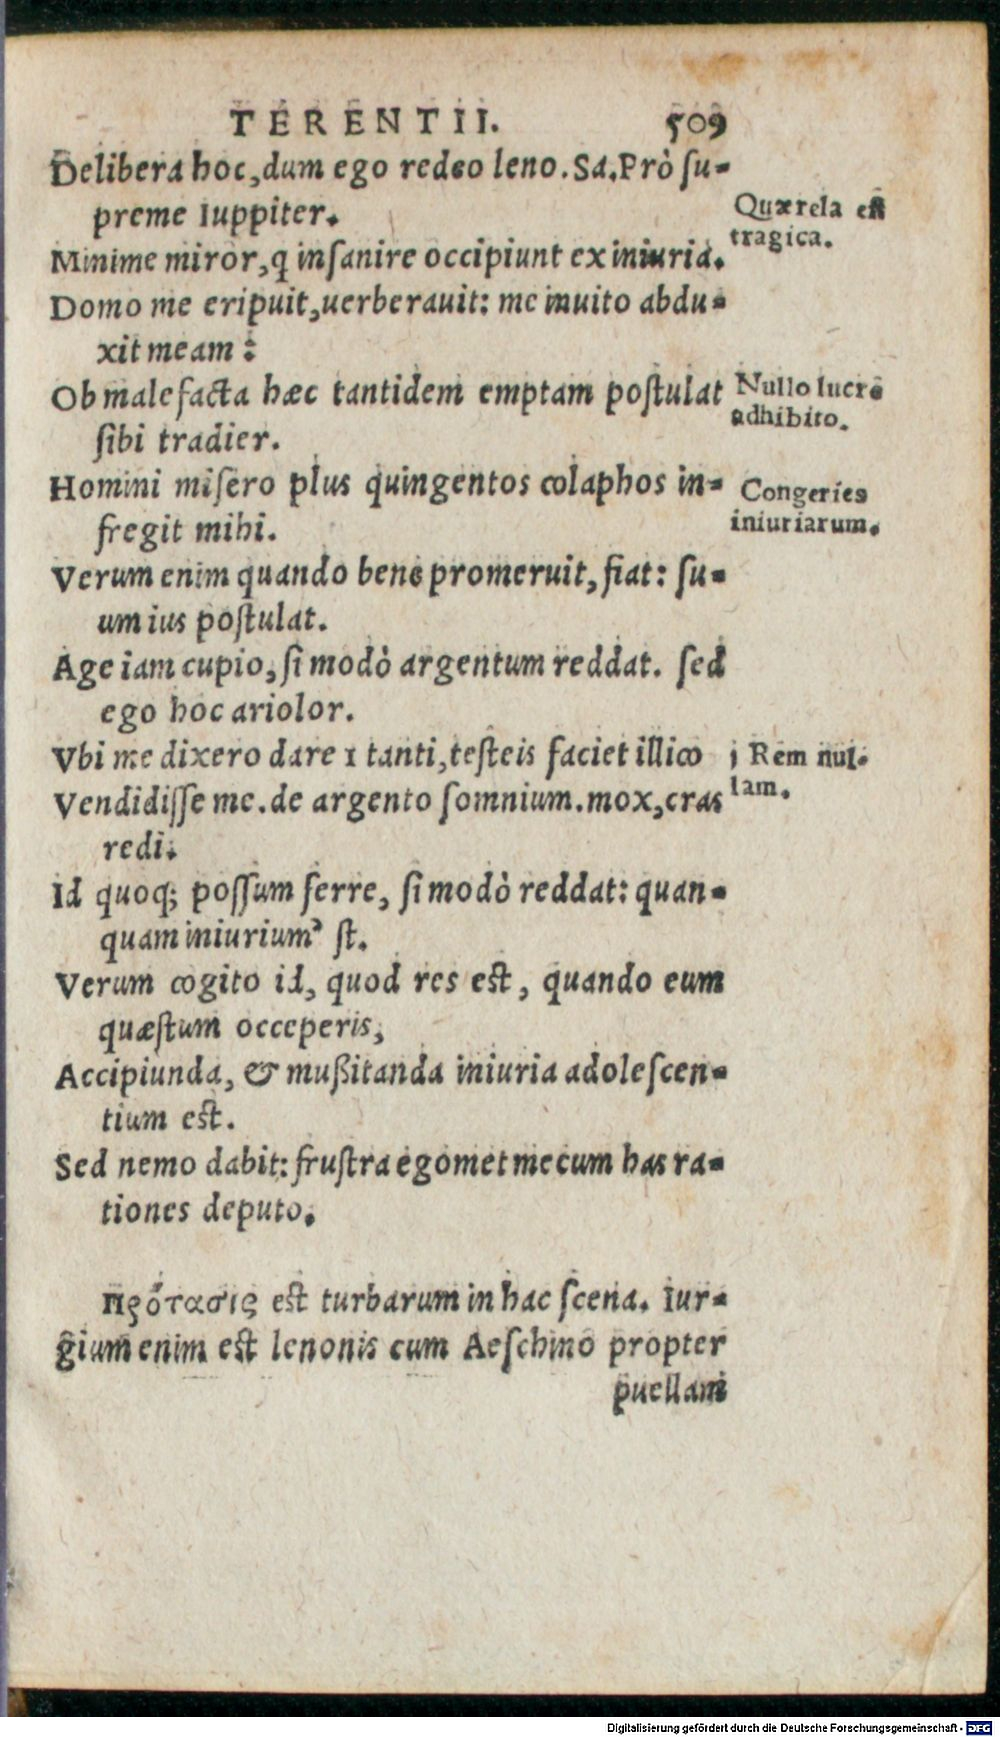 TERENTII. 509
Delibera hoc, dum ego redeo leno. Sa. Prò su-
preme Iuppiter.
Quærela est
tragica.
Minime miror, q insanire occipiunt ex iniuria.
Domo me eripuit, uerberauit: me inuito abdu-
xit meam:
Ob malefacta hæc tantidem emptam postulat
sibi tradier.
Nullo lucro
adhibito.
Homini misero plus quingentos colaphos in-
fregit mihi.
Congeries
iniuriarum.
Verum enim quando bene promeruit, fiat: su-
um ius postulat.
Age iam cupio, si modò argentum reddat. sed
ego hoc ariolor.
Vbi me dixero dare 1 tanti, testeis faciet illico
Vendidisse me. de argento somnium. mox, cras
redi.
1 Rem nul-
lam.
Id quoq; possum ferre, si modò reddat: quan-
quam iniurium' st.
Verum cogito id, quod res est, quando eum
quæstum occeperis,
Accipiunda, & mußitanda iniuria adolescen-
tium est.
Sed nemo dabit: frustra egomet mecum has ra-
tiones deputo.
Πρότασις est turbarum in hac scena. Iur-
gium enim est lenonis cum Aeschino propter
puellam
Digitalisierung gefördert durch die Deutsche Forschungsgemeinschaft - DFG